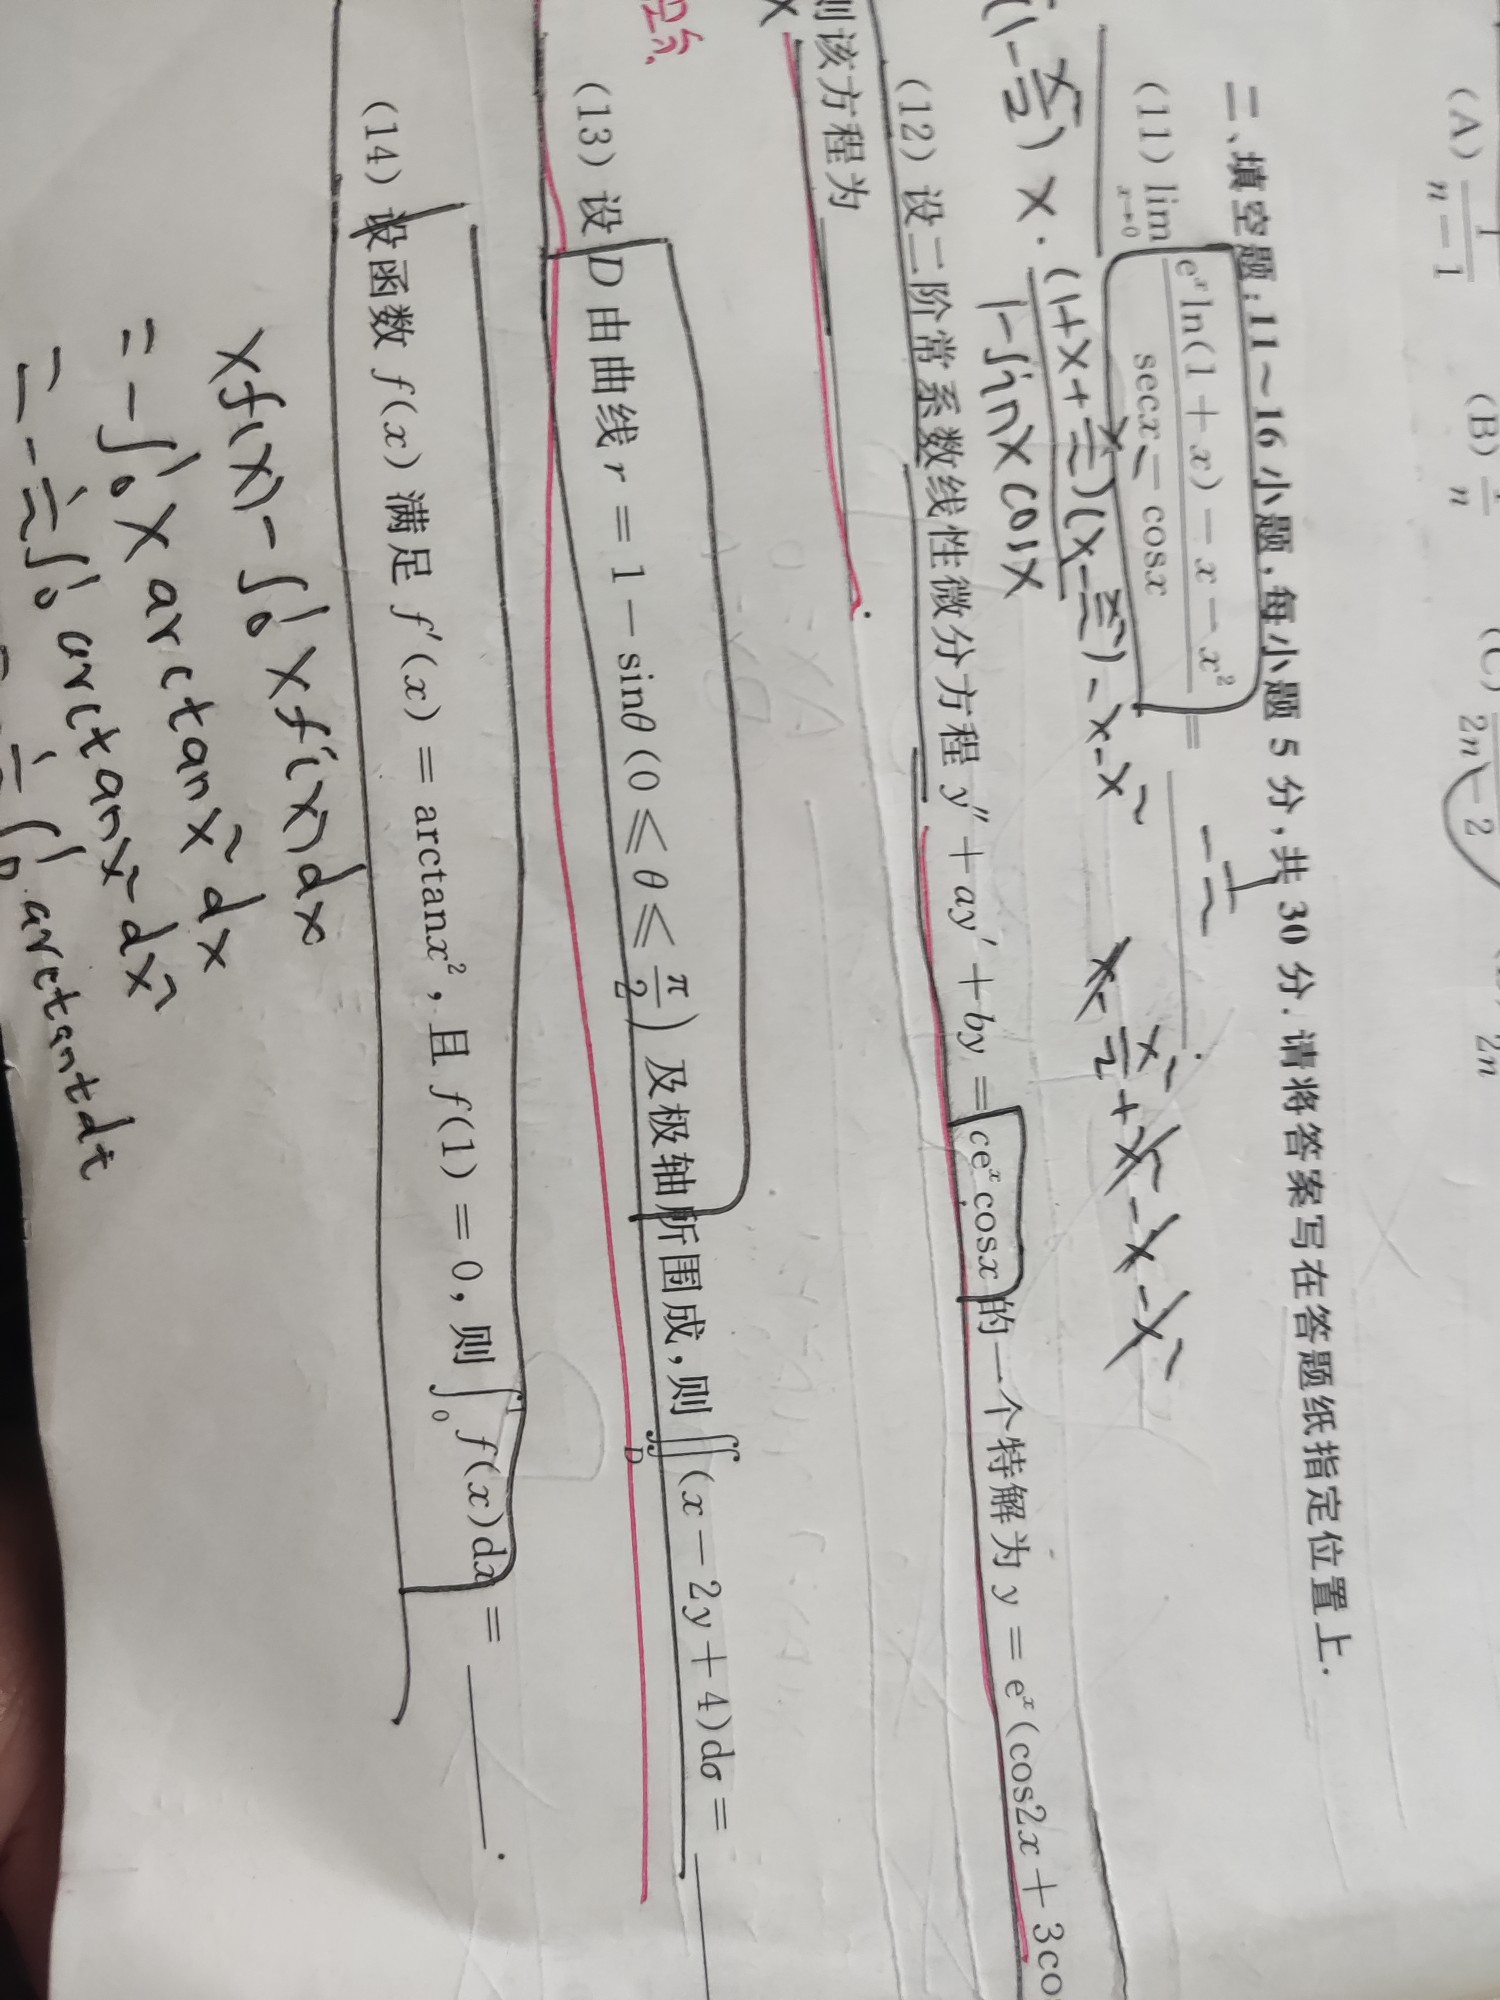 (A) 1/(n-1) (B) 1/n (C) /(2n-2) 2n
二、填空题:11～16小题,每小题5分,共30分.请将答案写在答题纸指定位置上.
(11) lim_{x→0} (e^x ln(1+x)-x-x²)/(secx-cosx) = ______.
(1+x+x²/2)(x-x²/2)-x-x²
1-sinx cosx
x-x²/2+x²-x-x²
(12) 设二阶常系数线性微分方程 y″+ay′+by=ce^x cosx 的一个特解为 y=e^x(cos2x+3co
则该方程为______.
(13) 设 D 由曲线 r=1-sinθ(0≤θ≤π/2)及极轴所围成,则∬_D (x-2y+4)dσ=______
(14) 设函数 f(x) 满足 f′(x)=arctanx²,且 f(1)=0,则∫₀¹ f(x)dx=______.
xf(x)-∫₀¹ xf′(x)dx
=-∫₀¹ x arctanx²dx
=-1/2∫₀¹ arctanx²dx²
1/2∫₀¹ arctantdt